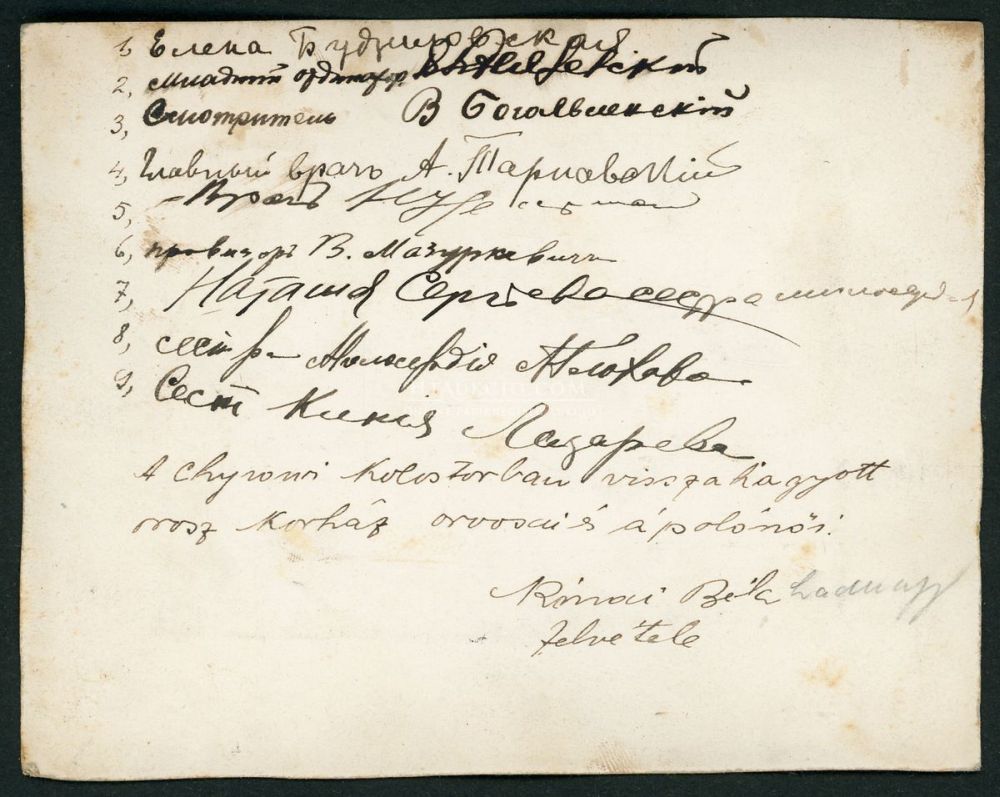 1, Елена Будзиновская
2, Младший ординатор
3, Смотритель В Богоявленский
4, Главный врачъ А. Тарнавскій
5, Врачъ
6, провизоръ В. Мазуркевичъ
7, Наташа Сергѣева сестра милосердія
8, сестра Милосердія
9, Сест Лазарева
A chyrowi kolostorban visszahagyott
orosz kórház orvosai és ápolónői.
Rónai Béla hadnagy
felvétele